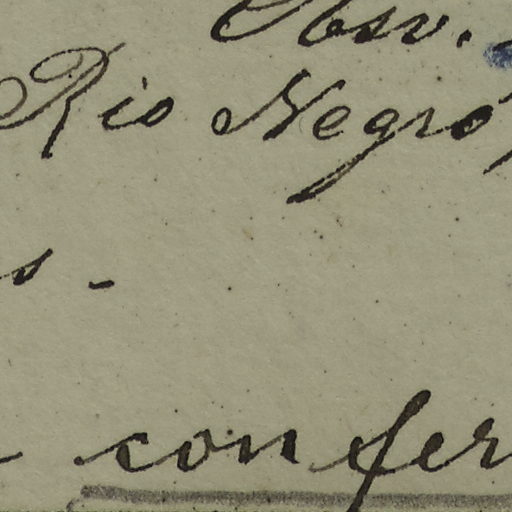 Obsv.
Rio Negro,
s -
confer